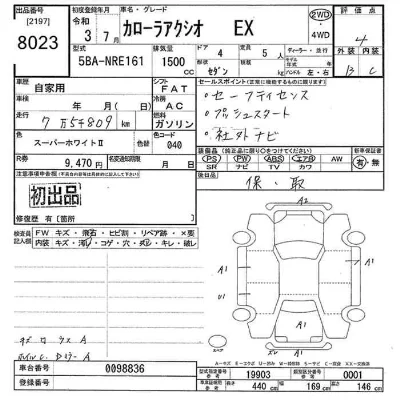 出品番号 [2197] 8023
初度登録年月 令和 3年 7月
車名・グレード カローラアクシオ EX
2WD・4WD
評価点 4
型式 5BA-NRE161
排気量 1500 CC
ドア 4 セダン
定員 5人
ディーラー・並行
モデル年式 年
ハンドル 左・右
外装 B 内装 C
自家用
シフト FAT
車検 年 月(日)
冷房 AC
走行 7万5千809 km
燃料 ガソリン
色 スーパーホワイトⅡ
色替
色コード 040
R券 9,470円
名変通知期限 月 日
セールスポイント
・セーフティセンス
・プッシュスタート
・社外ナビ
装備品
PS PW ABS エアB AW
SR ナビ TV カワ
新車保証書 有・無
後日品
保・取
注意事項
初出品
修復歴 有 [箇所 ]
検査員記入欄
FW キズ・飛石・ヒビ割・リペア跡・×要
内装 キズ・汚レ・コゲ・穴・凹ミ・キレ・破レ
A2
A1
A1
A1
スペア
車台番号 0098836
登録番号
型式指定番号 19903
類別区分番号 0001
長さ 440 cm 幅 169 cm 高さ 146 cm